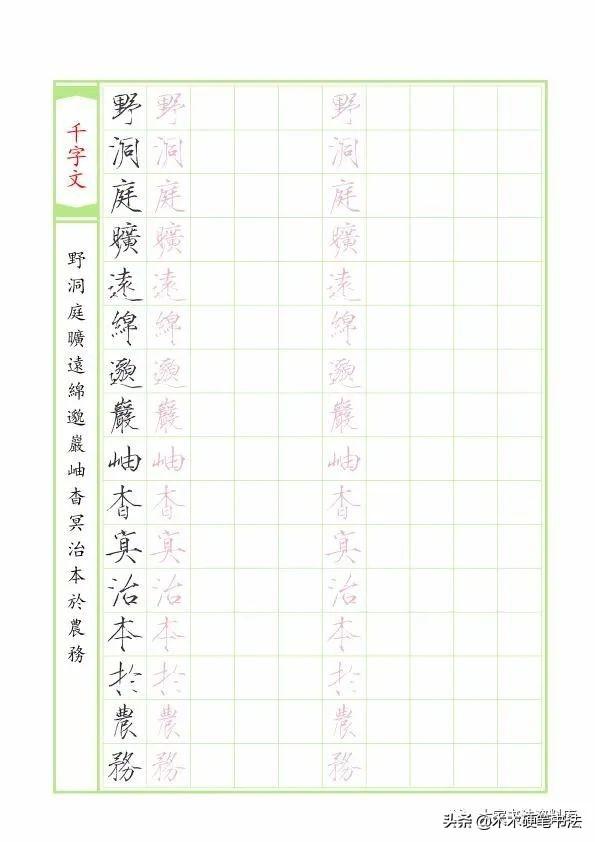 千字文
野洞庭曠遠綿邈巖岫杳冥治本於農務
野洞庭曠遠綿邈巖岫杳冥治本於農務
野洞庭曠遠綿邈巖岫杳冥治本於農務
野洞庭曠遠綿邈巖岫杳冥治本於農務
头条 @木木硬笔书法